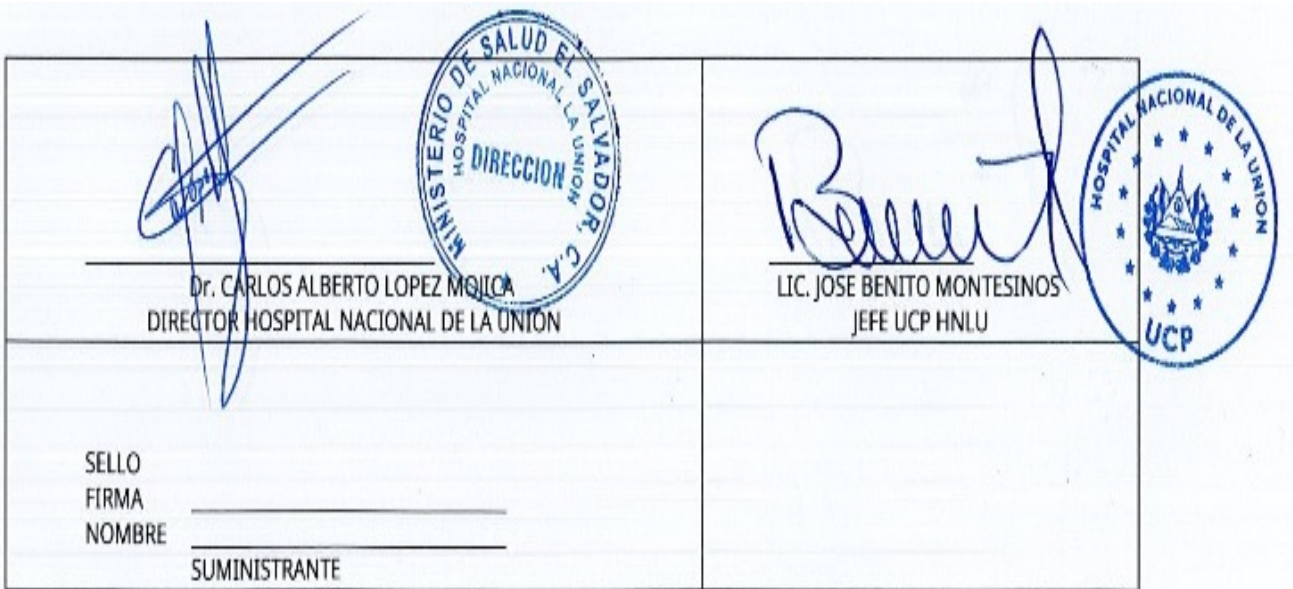 MINISTERIO DE SALUD EL SALVADOR, C.A.
HOSPITAL NACIONAL LA UNION
DIRECCION
Dr. CARLOS ALBERTO LOPEZ MOJICA
DIRECTOR HOSPITAL NACIONAL DE LA UNION
HOSPITAL NACIONAL DE LA UNION
UCP
LIC. JOSE BENITO MONTESINOS
JEFE UCP HNLU
SELLO
FIRMA
NOMBRE
SUMINISTRANTE